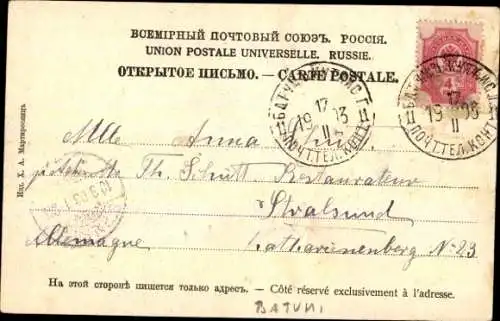 ВСЕМІРНЫЙ ПОЧТОВЫЙ СОЮЗЪ. РОССІЯ.
UNION POSTALE UNIVERSELLE. RUSSIE.
ОТКРЫТОЕ ПИСЬМО. — CARTE POSTALE.
17
19 03
II
ПОЧТ.ТЕЛ.КОНТ.
4
17
19 03
II
ПОЧТ.ТЕЛ.КОНТ.
Изд. Х. А. Мартиросянцъ.
Mlle Anna
Th. Schütt Restaurateur
Stralsund
Allemagne Catharienenberg No 23
На этой сторонѣ пишется только адресъ. — Côté réservé exclusivement à l'adresse.
BATUMI